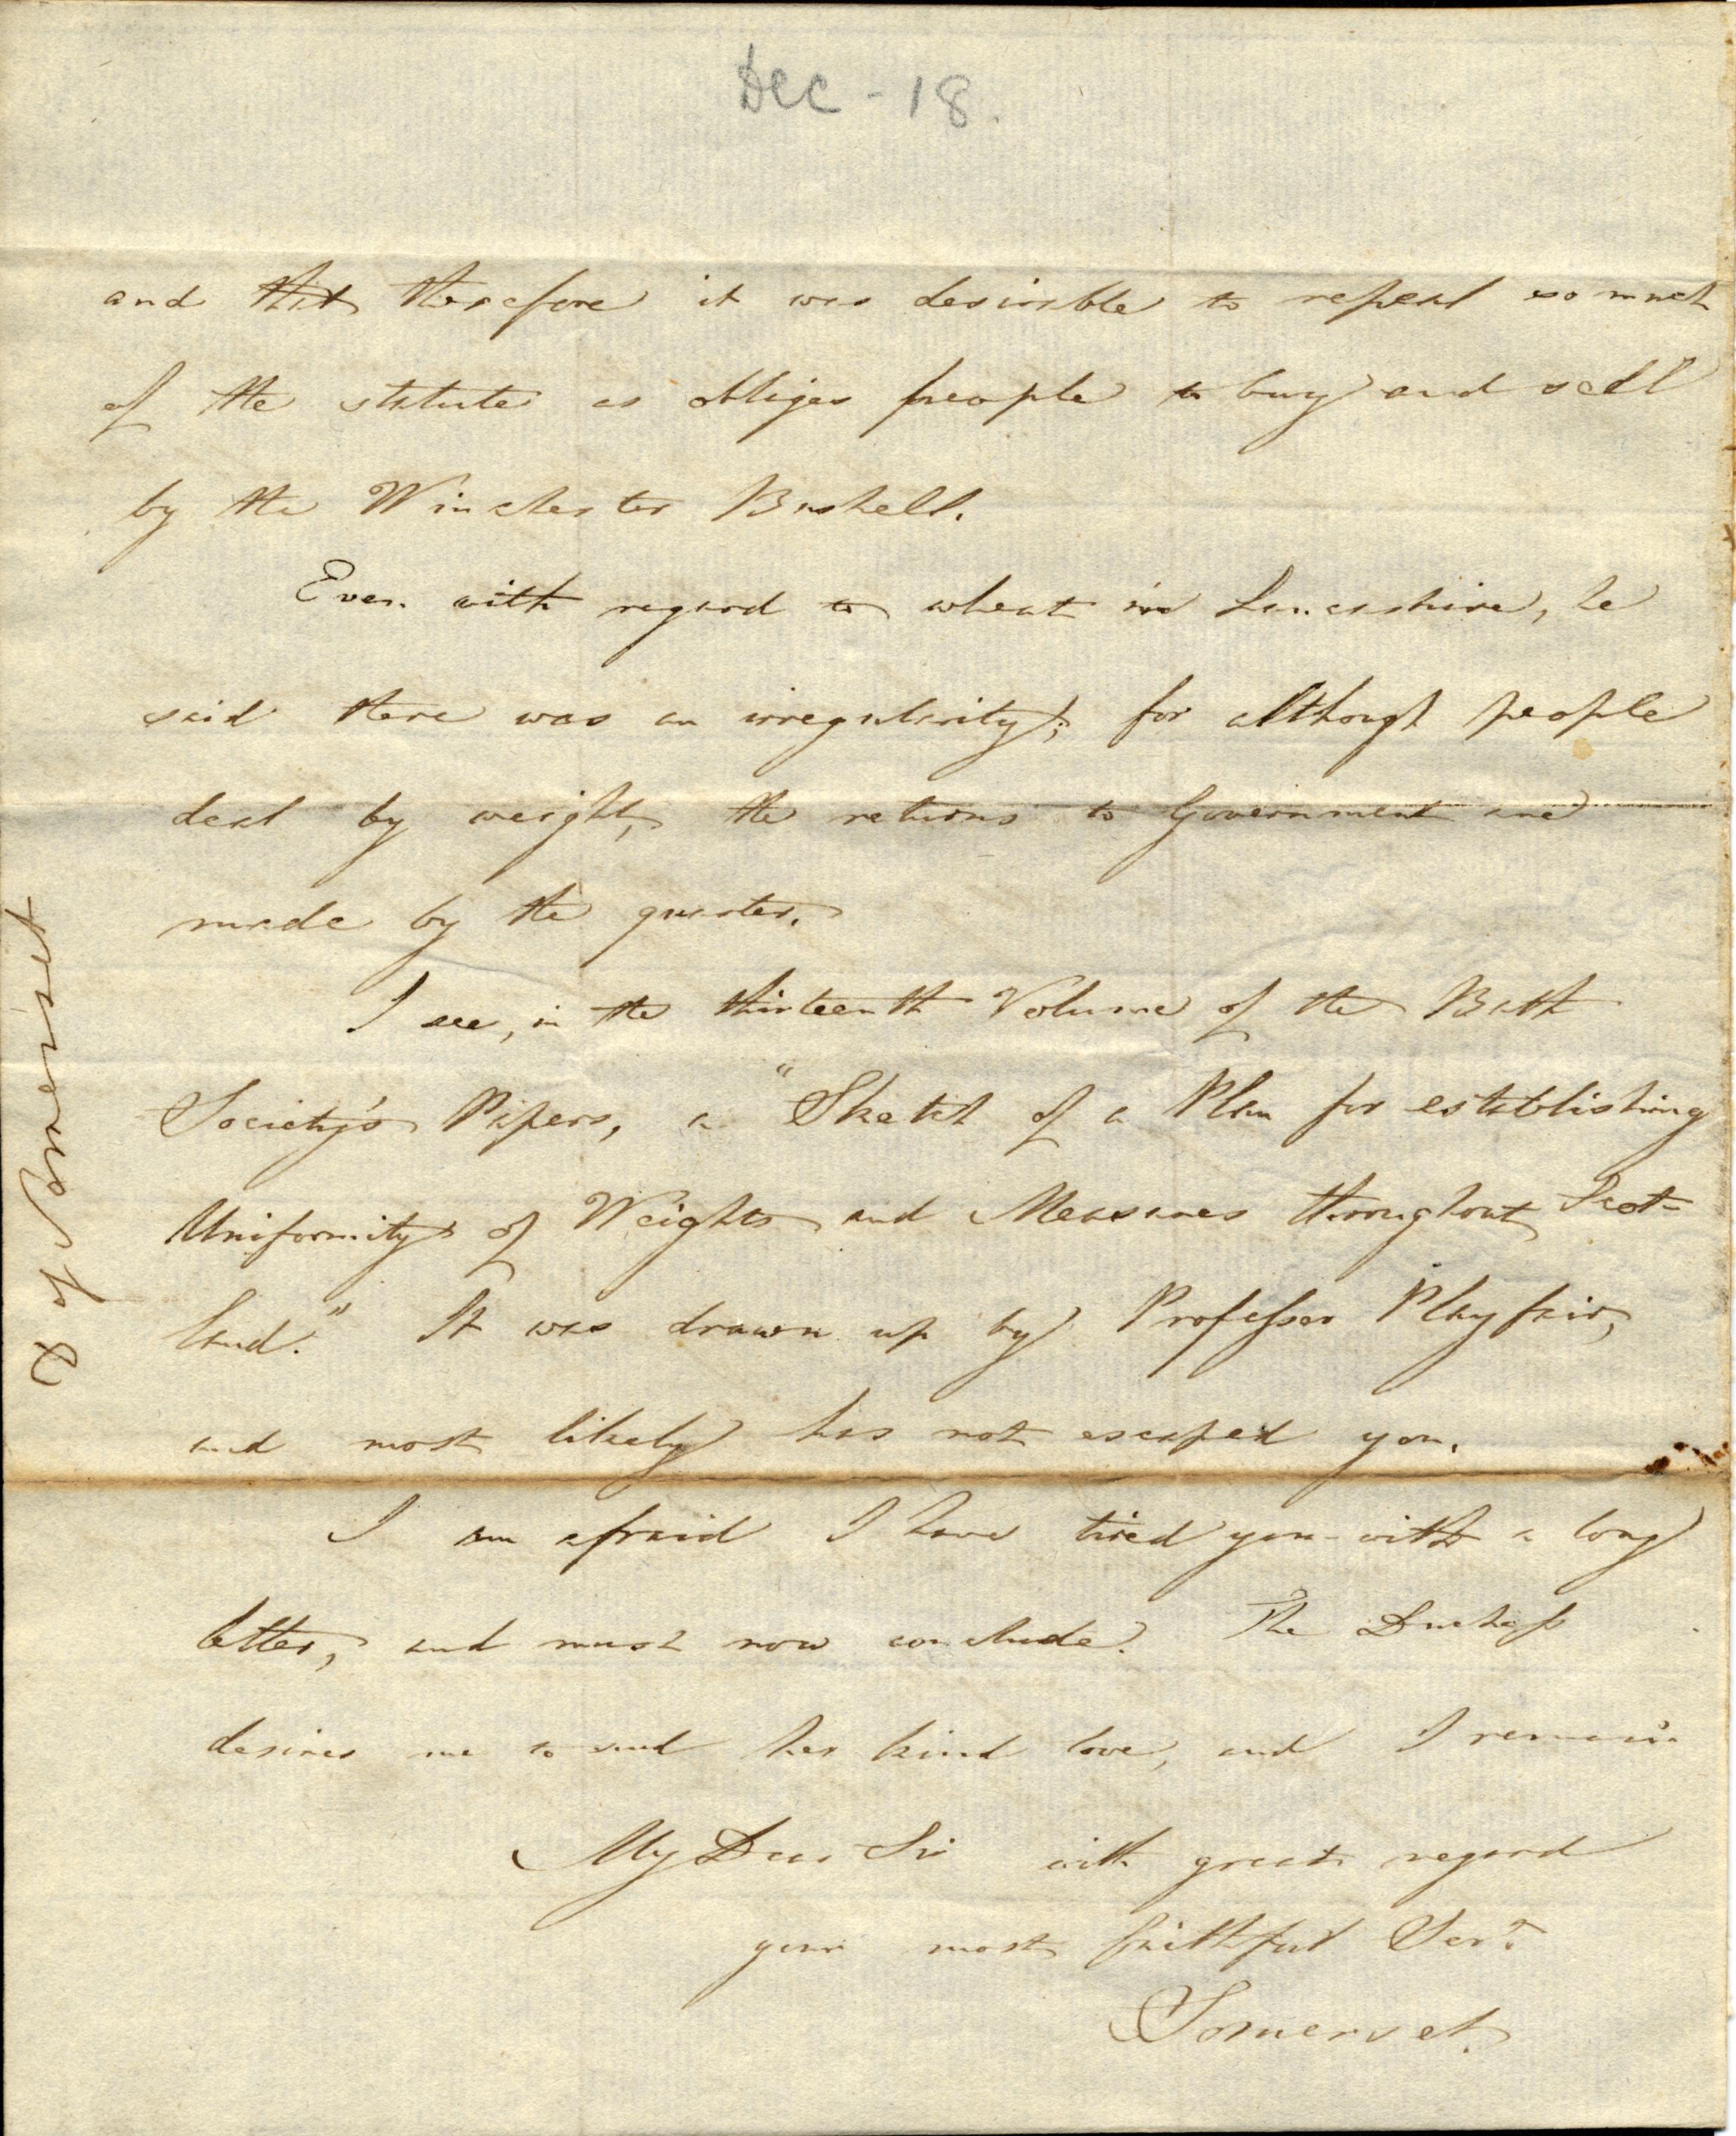 Dec - 18.
and that therefore it was desirable to repeal so much
of the statute as obliges people to buy and sell
by the Winchester Bushell.
Even with regard to wheat in Lancashire, he
said there was an irregularity; for although people
deal by weight, the returns to Government are
made by the quarter.
I see, in the thirteenth Volume of the Bath
Society's Papers, a "Sketch of a Plan for establishing
Uniformity of Weights and Measures throughout Scot-
land." It was drawn up by Professor Playfair,
and most likely has not escaped you.
I am afraid I have tired you with a long
letter, and must now conclude. The Duchess
desires me to send her kind love, and I remain
My Dear Sir with great regard
your most faithful Servt.
Somerset.
D of Somerset